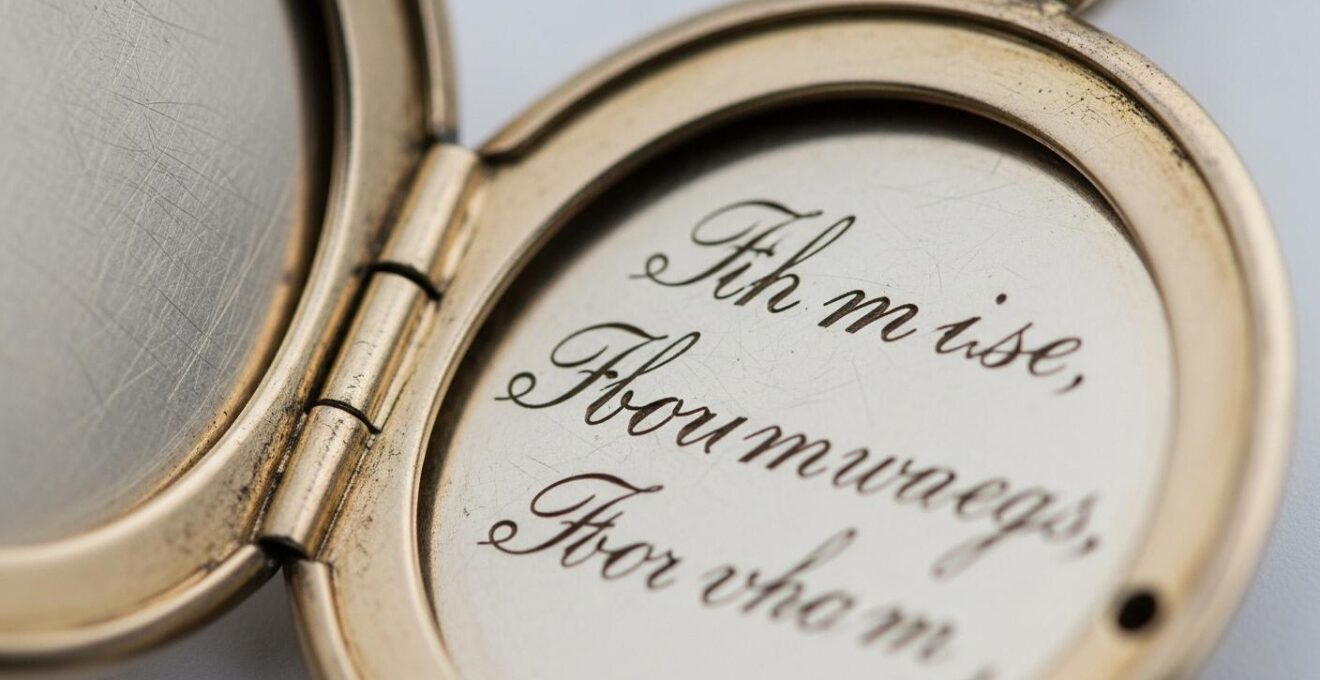 Fih m ise,
Fboumwaegs,
Fbor vham,